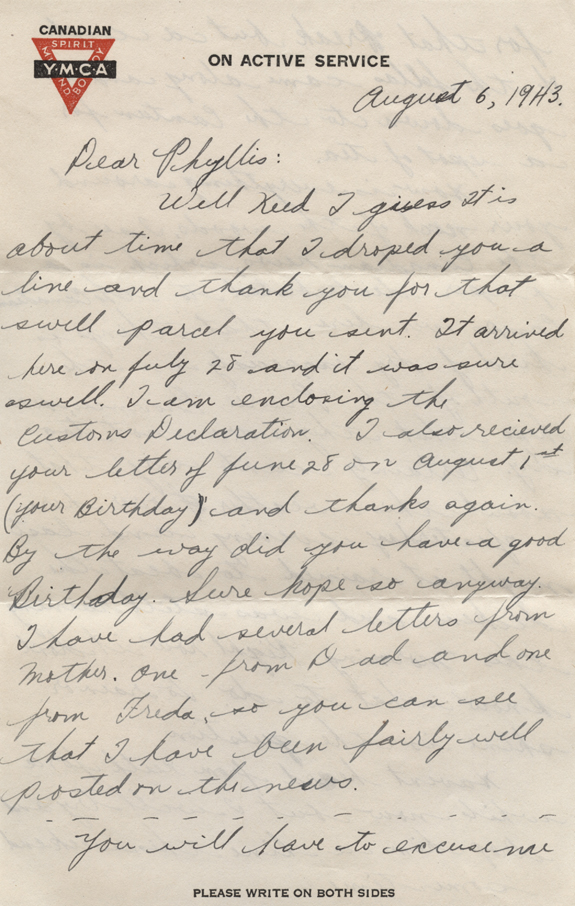 CANADIAN
SPIRIT
Y·M·C·A
MIND BODY
ON ACTIVE SERVICE
August 6, 1943.
Dear Phyllis:
Well Kied I guess It is
about time that I droped you a
line and thank you for that
swell parcel you sent. It arrived
here on July 28 and it was sure
sswell. I am enclosing the
Customs Declaration. I also recieved
your letter of June 28 on August 1st
(your Birthday) and thanks again.
By the way did you have a good
Birthday. Sure hope so anyway.
I have had several letters from
Mother. One from Dad and one
from Freda, so you can see
that I have been fairly well
posted on the news.
You will have to excuse me
PLEASE WRITE ON BOTH SIDES